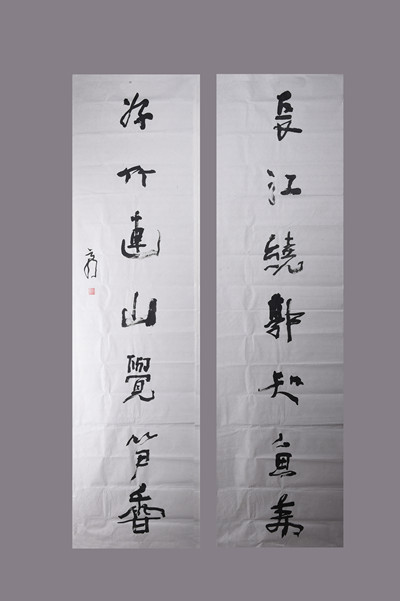 長江繞郭知魚美
好竹連山覺笋香